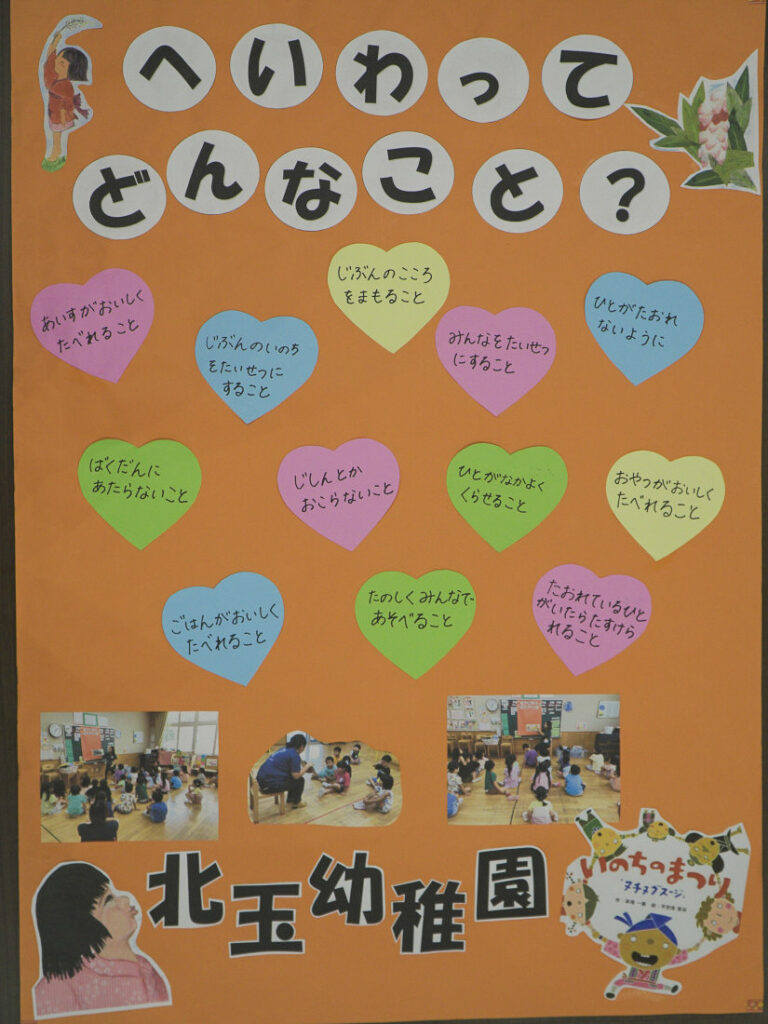 へいわって
どんなこと?
じぶんのこころ
をまもること
あいすがおいしく
たべれること
じぶんのいのち
をたいせつに
すること
みんなをたいせつ
にすること
ひとがたおれ
ないように
ばくだんに
あたらないこと
じしんとか
おこらないこと
ひとがなかよく
くらせること
おやつがおいしく
たべれること
ごはんがおいしく
たべれること
たのしくみんなで
あそべること
たおれているひと
がいたらたすけら
れること
北玉幼稚園
いのちのまつり
「ヌチヌグスージ」